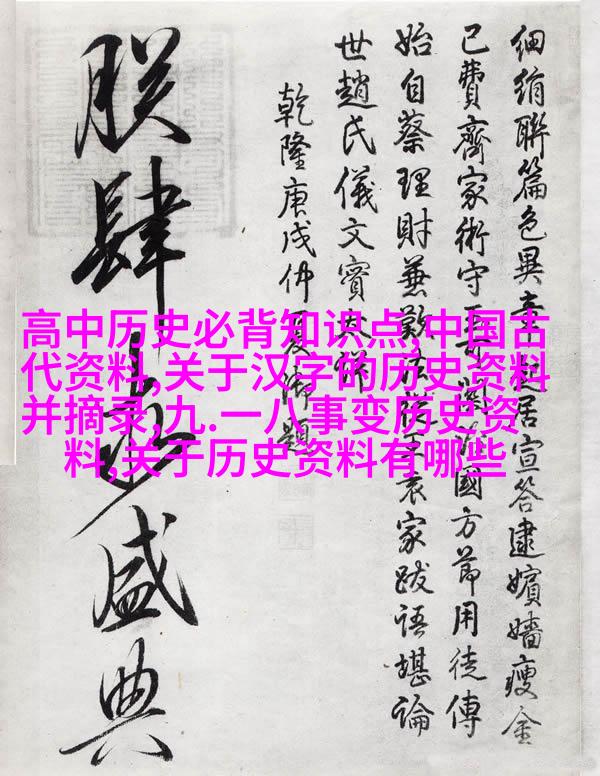 高中历史必背知识点,中国古
代资料,关于汉字的历史资料
并摘录,九.一八事变历史资
料,关于历史资料有哪些
細絹聯篇色異起居宣答逮嬪嬙瘦金
已費齊家術守國方節用徒傳
始自蔡理財兼袁家跋語堪論
世趙氏儀文實
乾隆庚戌仲夏御題
肆盛典